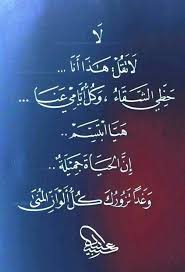 لَا
لَا تَقُلْ هَذَا أَنَا ...
حَظِّي الشَّقَاءُ ، وَكُلُّ أَيَّامِي عَنَا ...
هَيَّا ابْتَسِمْ ..
إِنَّ الْحَيَاةَ جَمِيلَةٌ ..
وَغَدًا تَزُورُكَ كُلُّ أَلْوَانِ الْمُنَى